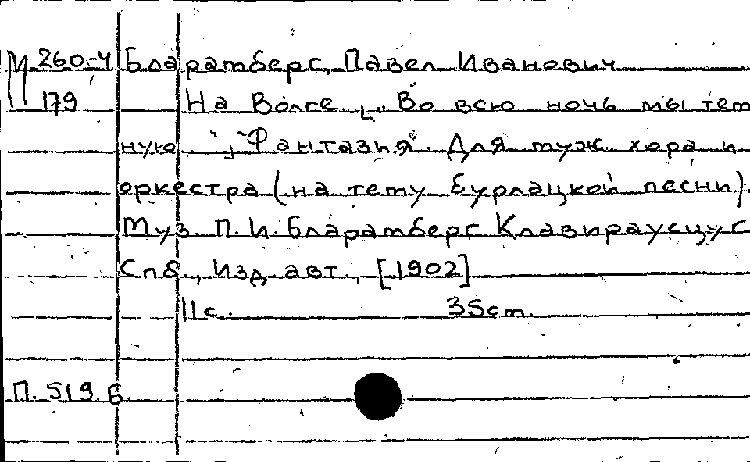 М 260-4 Бларамберг, Павел Иванович
179 На Волге. [„Во всю ночь мы тем
ную"] „Фантазия". Для муж. хора и
оркестра (на тему бурлацкой песни).
Муз. П. И. Бларамберг Клавираусцуг
Спб., Изд. авт., [1902]
11 с. 35 cm.
П. 519 б